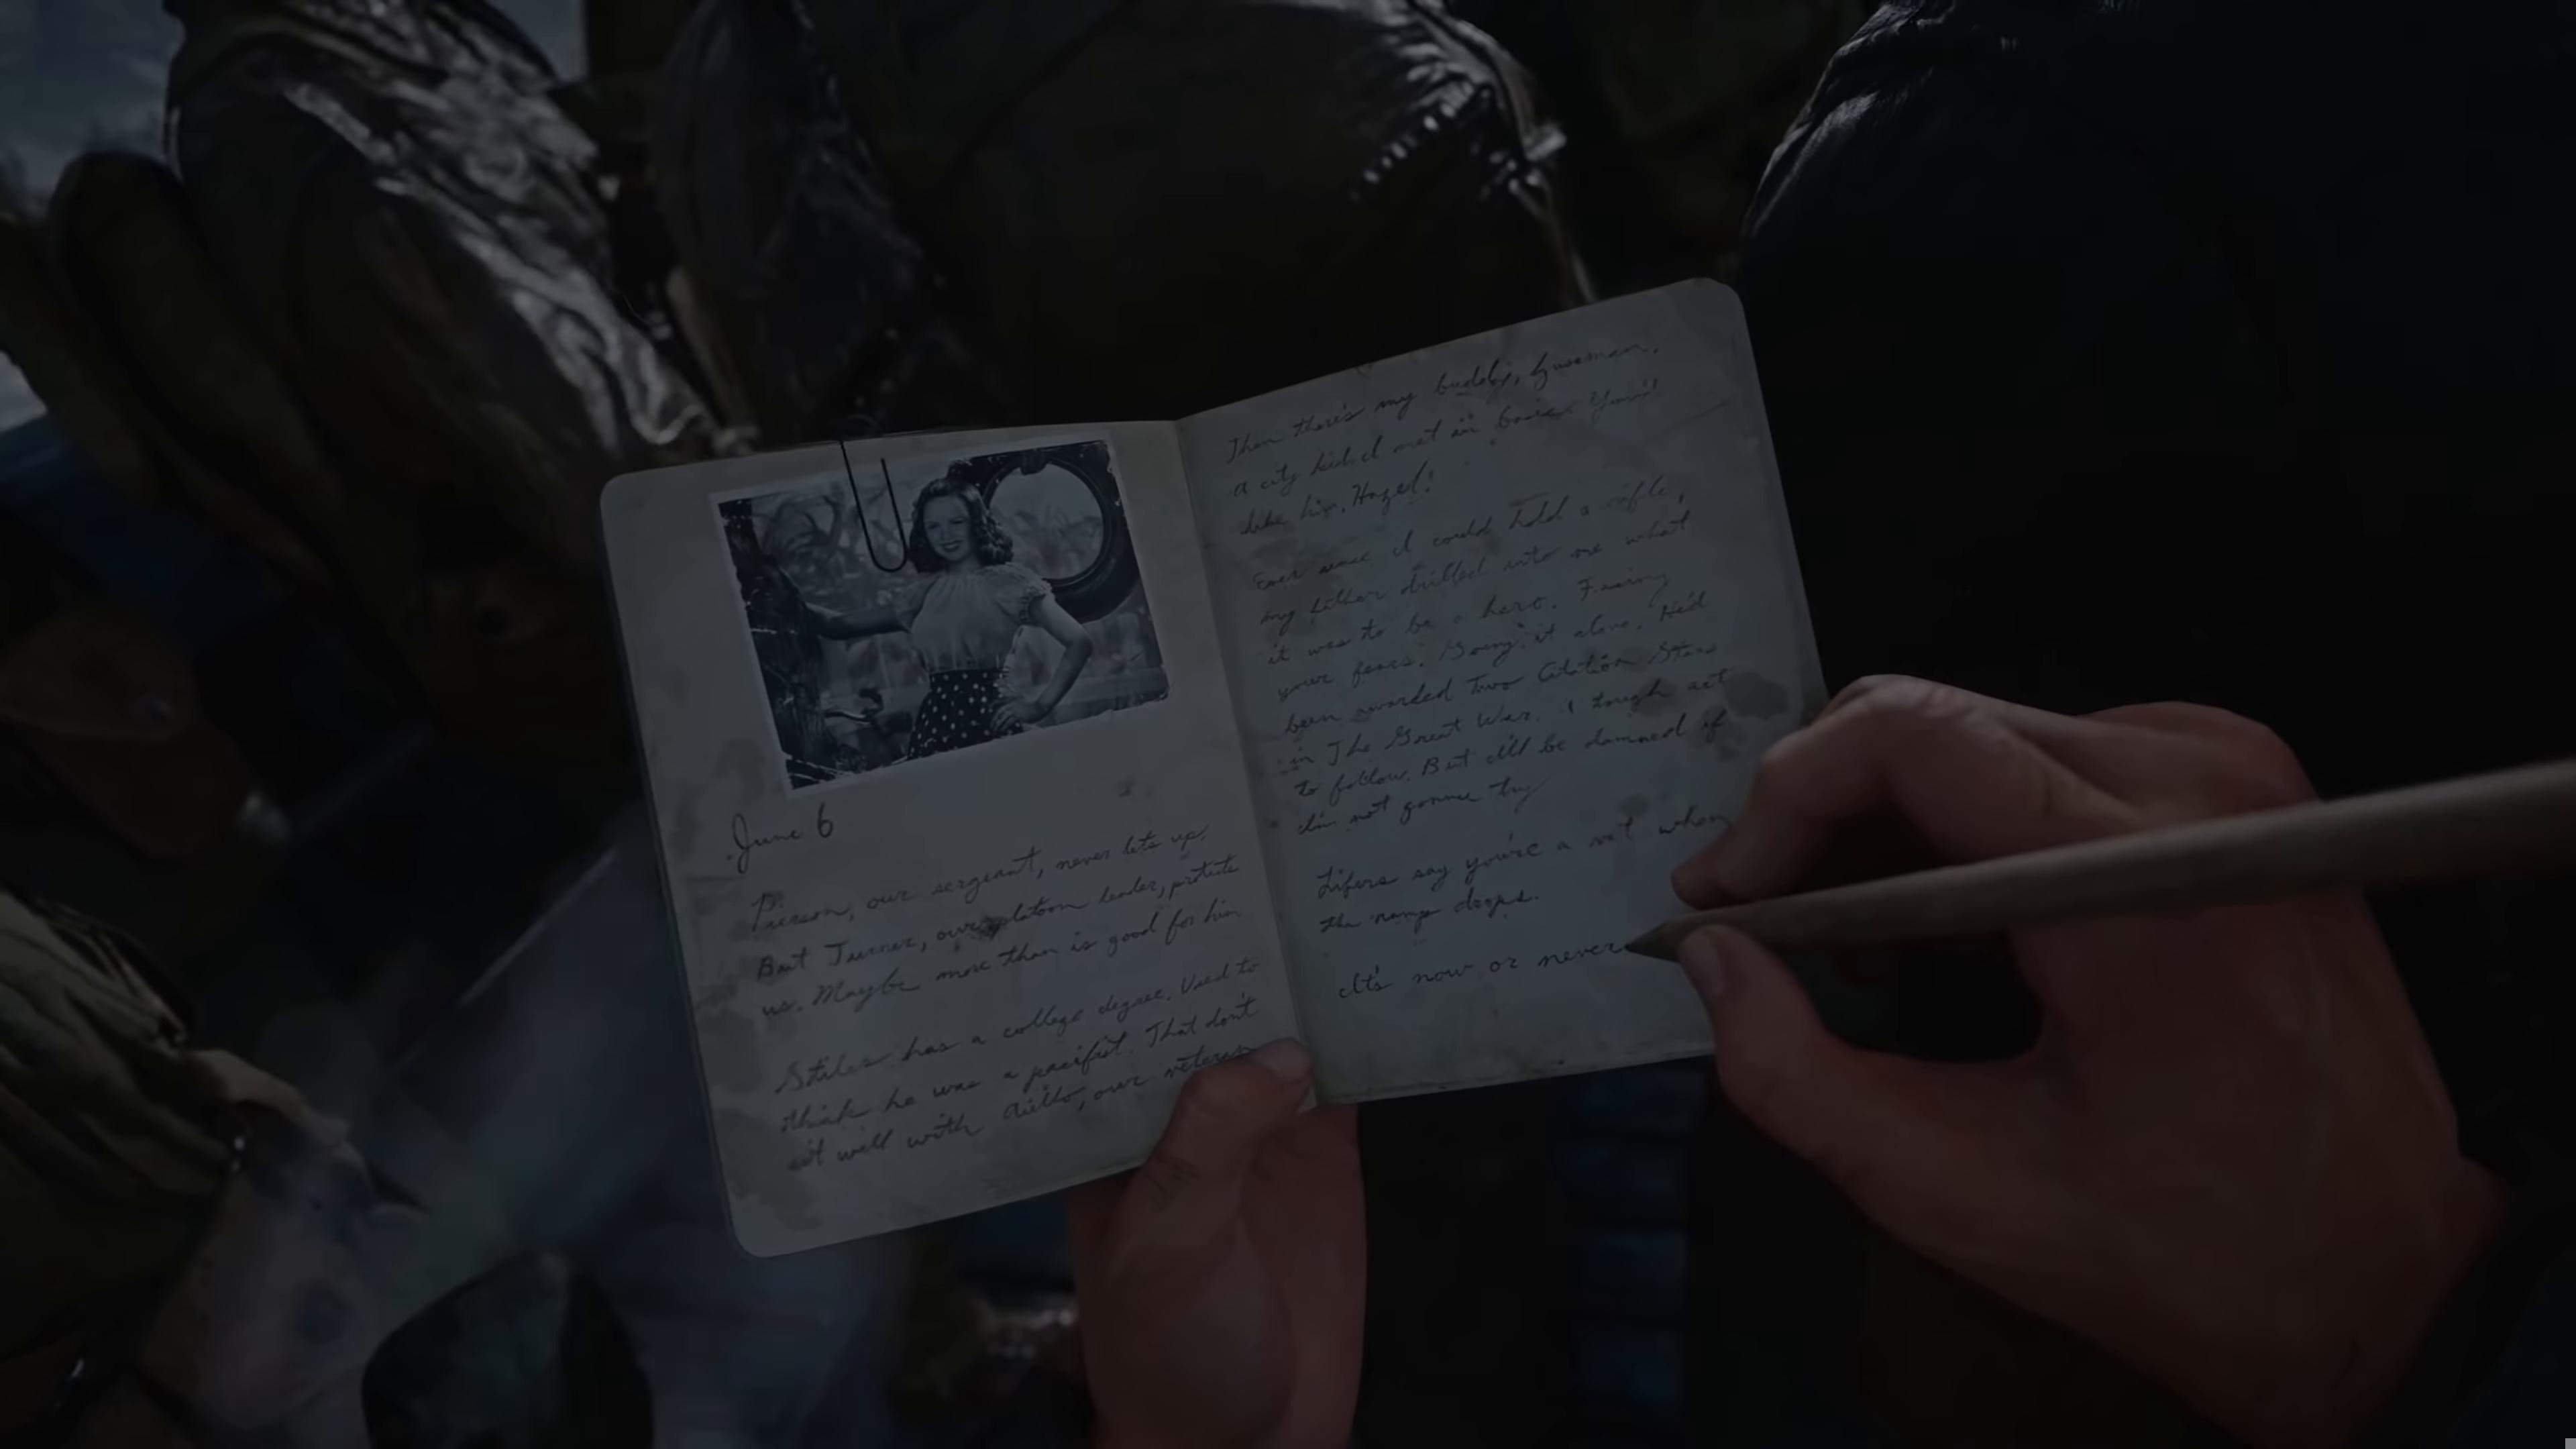 June 6
Pierson, our sergeant, never lets up.
But Turner, our platoon leader, protects
us. Maybe more than is good for him
Stiles has a college degree. Used to
think he was a pacifist. That don't
sit well with Aiello, our veteran
Then there's my buddy, Zussman.
A city kid I met in basic. You'd
like him, Hazel!
Ever since I could hold a rifle,
my father drilled into me what
it was to be a hero. Facing
your fears. Going it alone. He'd
been awarded Two Citation Stars
in The Great War. A tough act
to follow. But I'll be damned if
I'm not gonna try
Lifers say you're a vet when
the ramp drops.
It's now or never